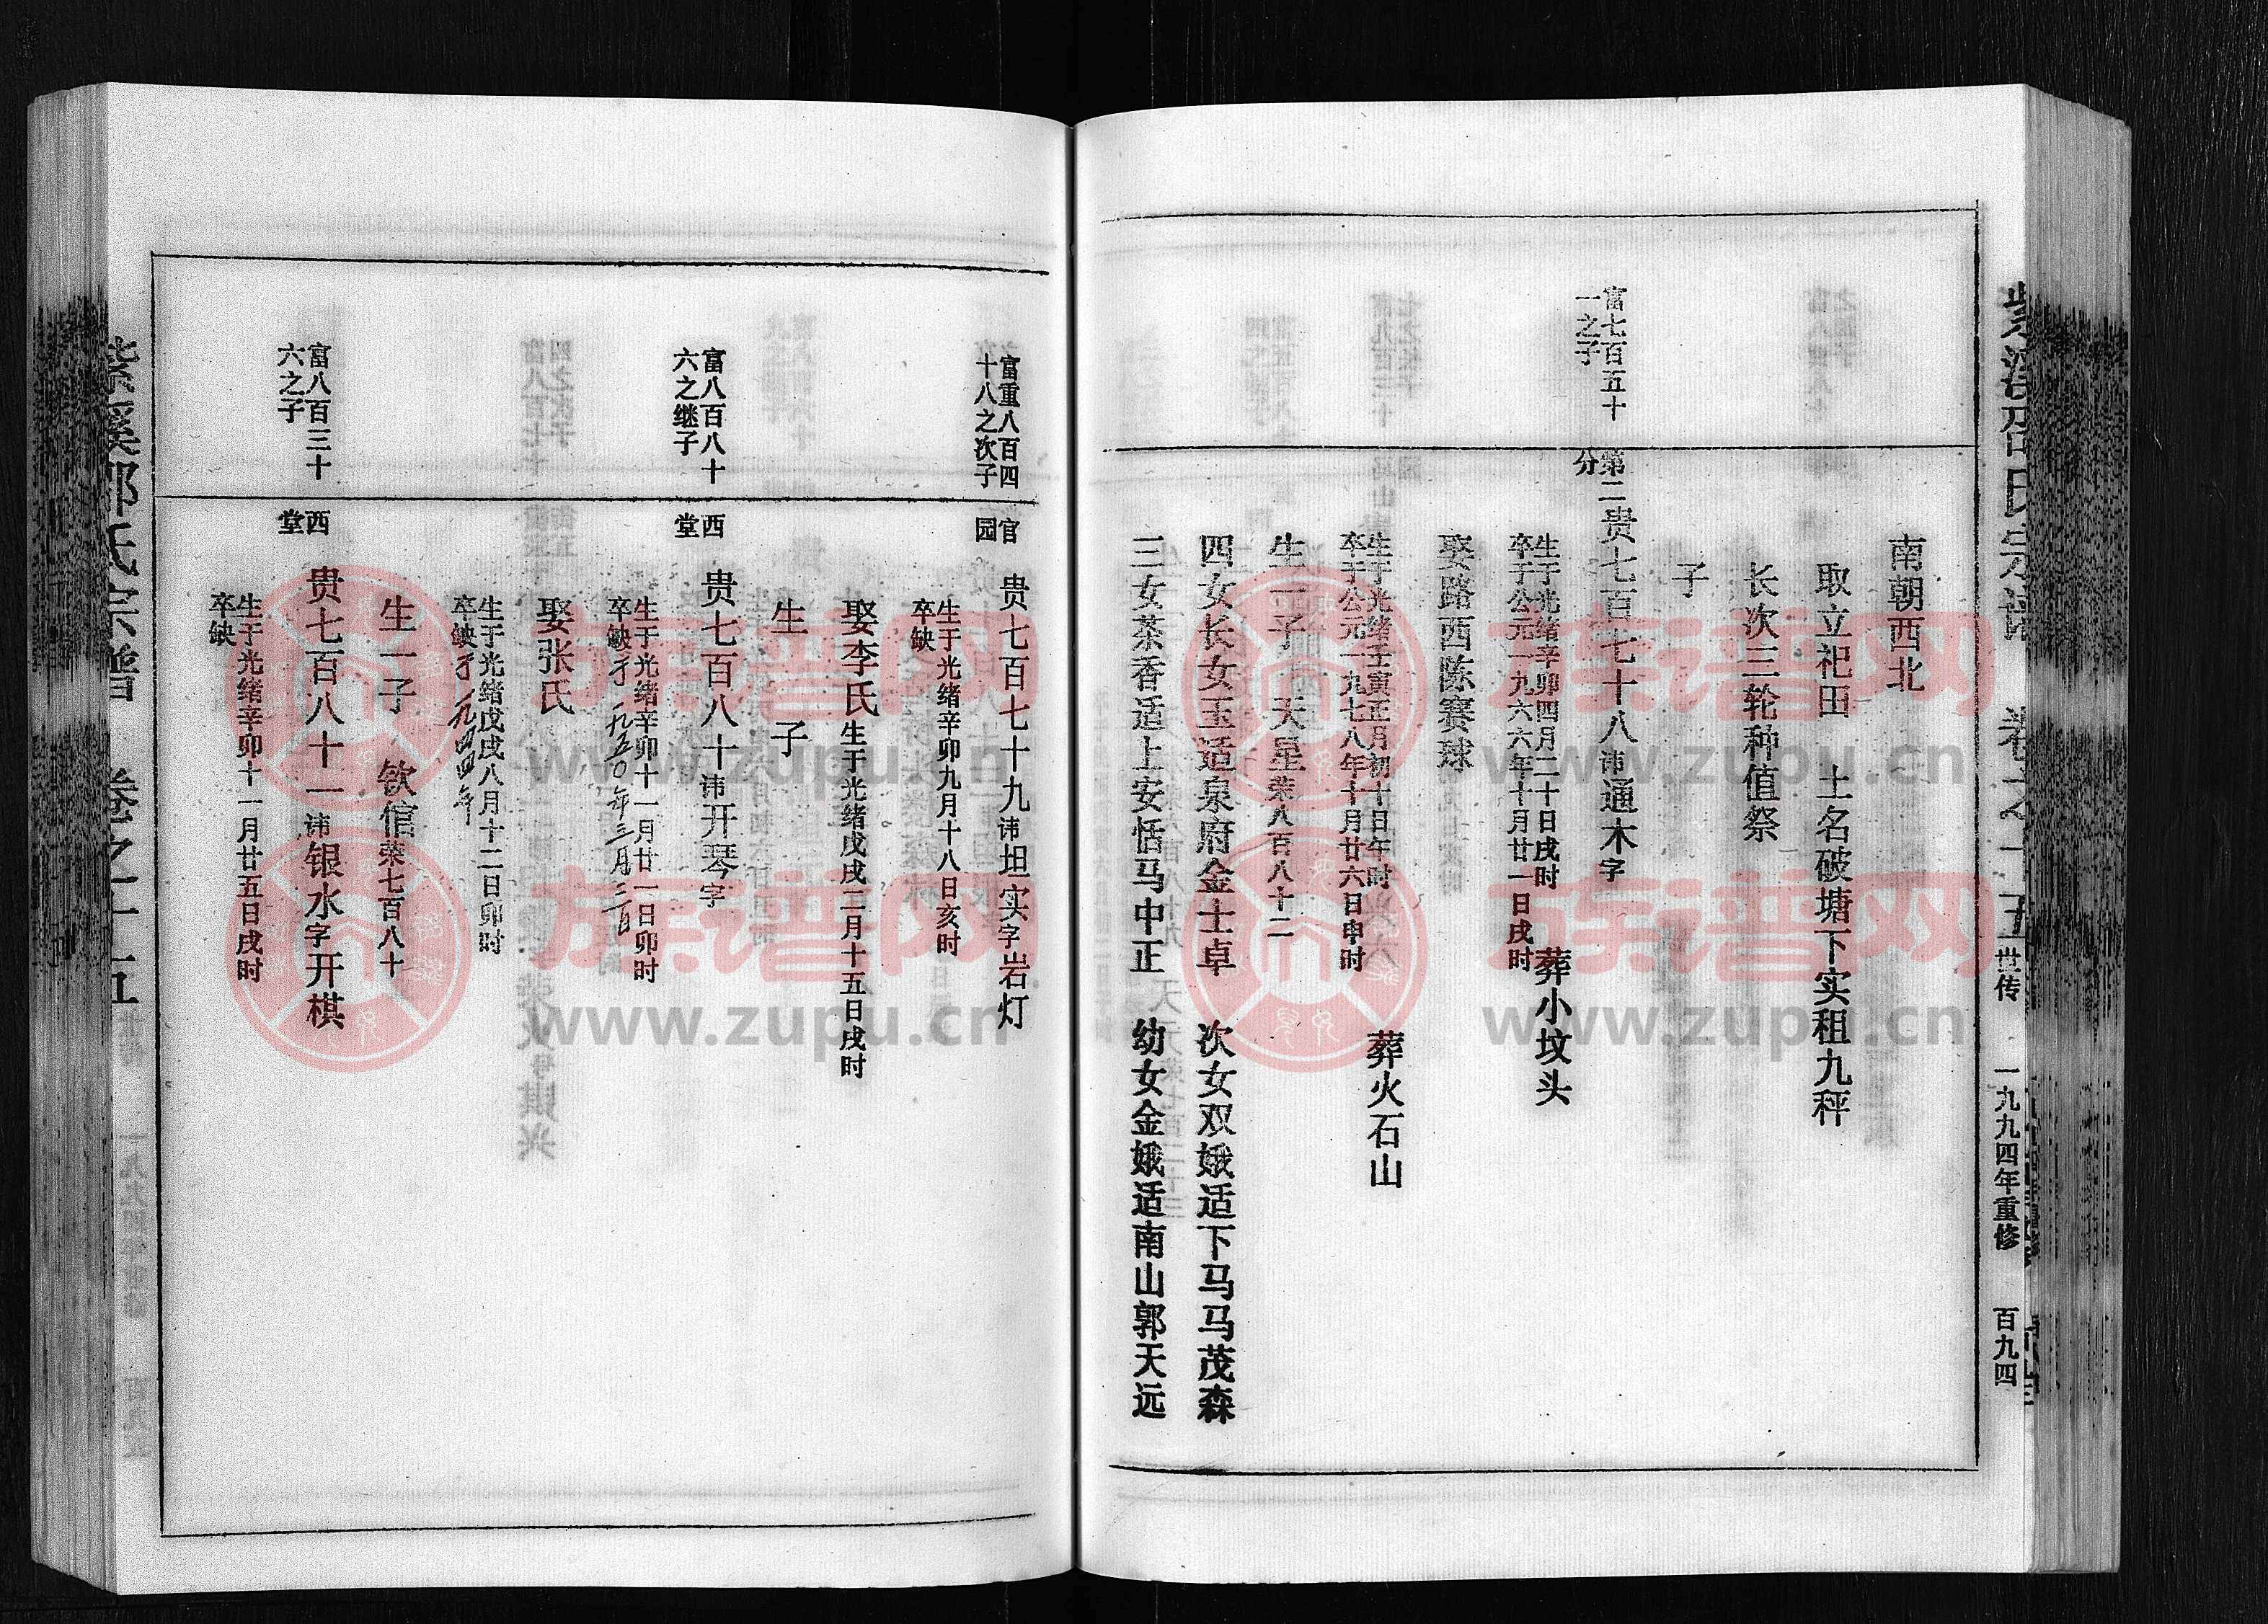 南朝西北
取立祀田 土名破塘下实租九秤
长次三轮种值祭
子
富七百五十
一之子
第二
分
贵七百七十八讳通木字
生于光绪辛卯四月二十日戌时
卒于公元一九六六年十月廿一日戌时
葬小坟头
娶路西陈赛球
生于光绪壬寅正月初十日午时
卒于公元一九七八年十月廿六日申时
葬火石山
生一子 天星荣八百八十二
四女长女玉适泉府金士卓 次女双娥适下马马茂森
三女茶香适上安恬马中正 幼女金娥适南山郭天远
世传 一九九四年重修 百九四
富重八百四
十八之次子
官
园
贵七百七十九讳坦实字岩灯
生于光绪辛卯九月十八日亥时
卒缺
娶李氏生于光绪戊戌二月十五日戌时
生 子
富八百八十
六之继子
西
堂
贵七百八十讳开琴字
生于光绪辛卯十一月廿一日卯时
卒缺于一九五〇年三月三日
娶张氏
生于光绪戊戌八月十二日卯时
卒缺于一九四四年
生一子 钦倌荣七百八十
富八百三十
六之子
西
堂
贵七百八十一讳银水字开棋
生于光绪辛卯十一月廿五日戌时
卒缺
族谱网
www.zupu.cn
族谱网
www.zupu.cn
族谱网
www.zupu.cn
族谱网
www.zupu.cn